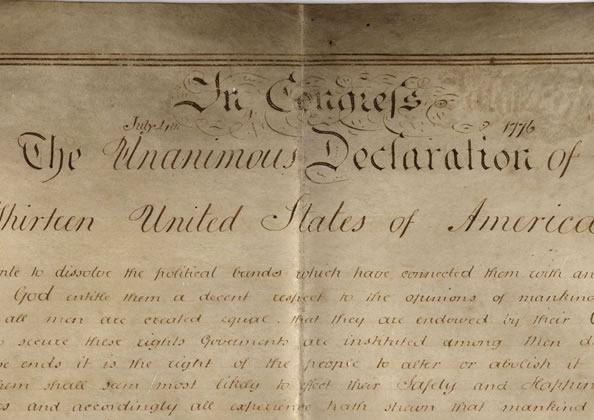 In Congress
July 4th 1776
The Unanimous Declaration of
Thirteen United States of America
to dissolve the political bands which have connected them with an
God entitle them a decent respect to the opinions of mankind
all men are created equal. that they are endowed by their
to secure these rights Goverments are instituted among men
ends it is the right of the people to alter or abolish it
shall seem most likely to effect their Safely and Happin
and accordingly all experience hath shown that mankind